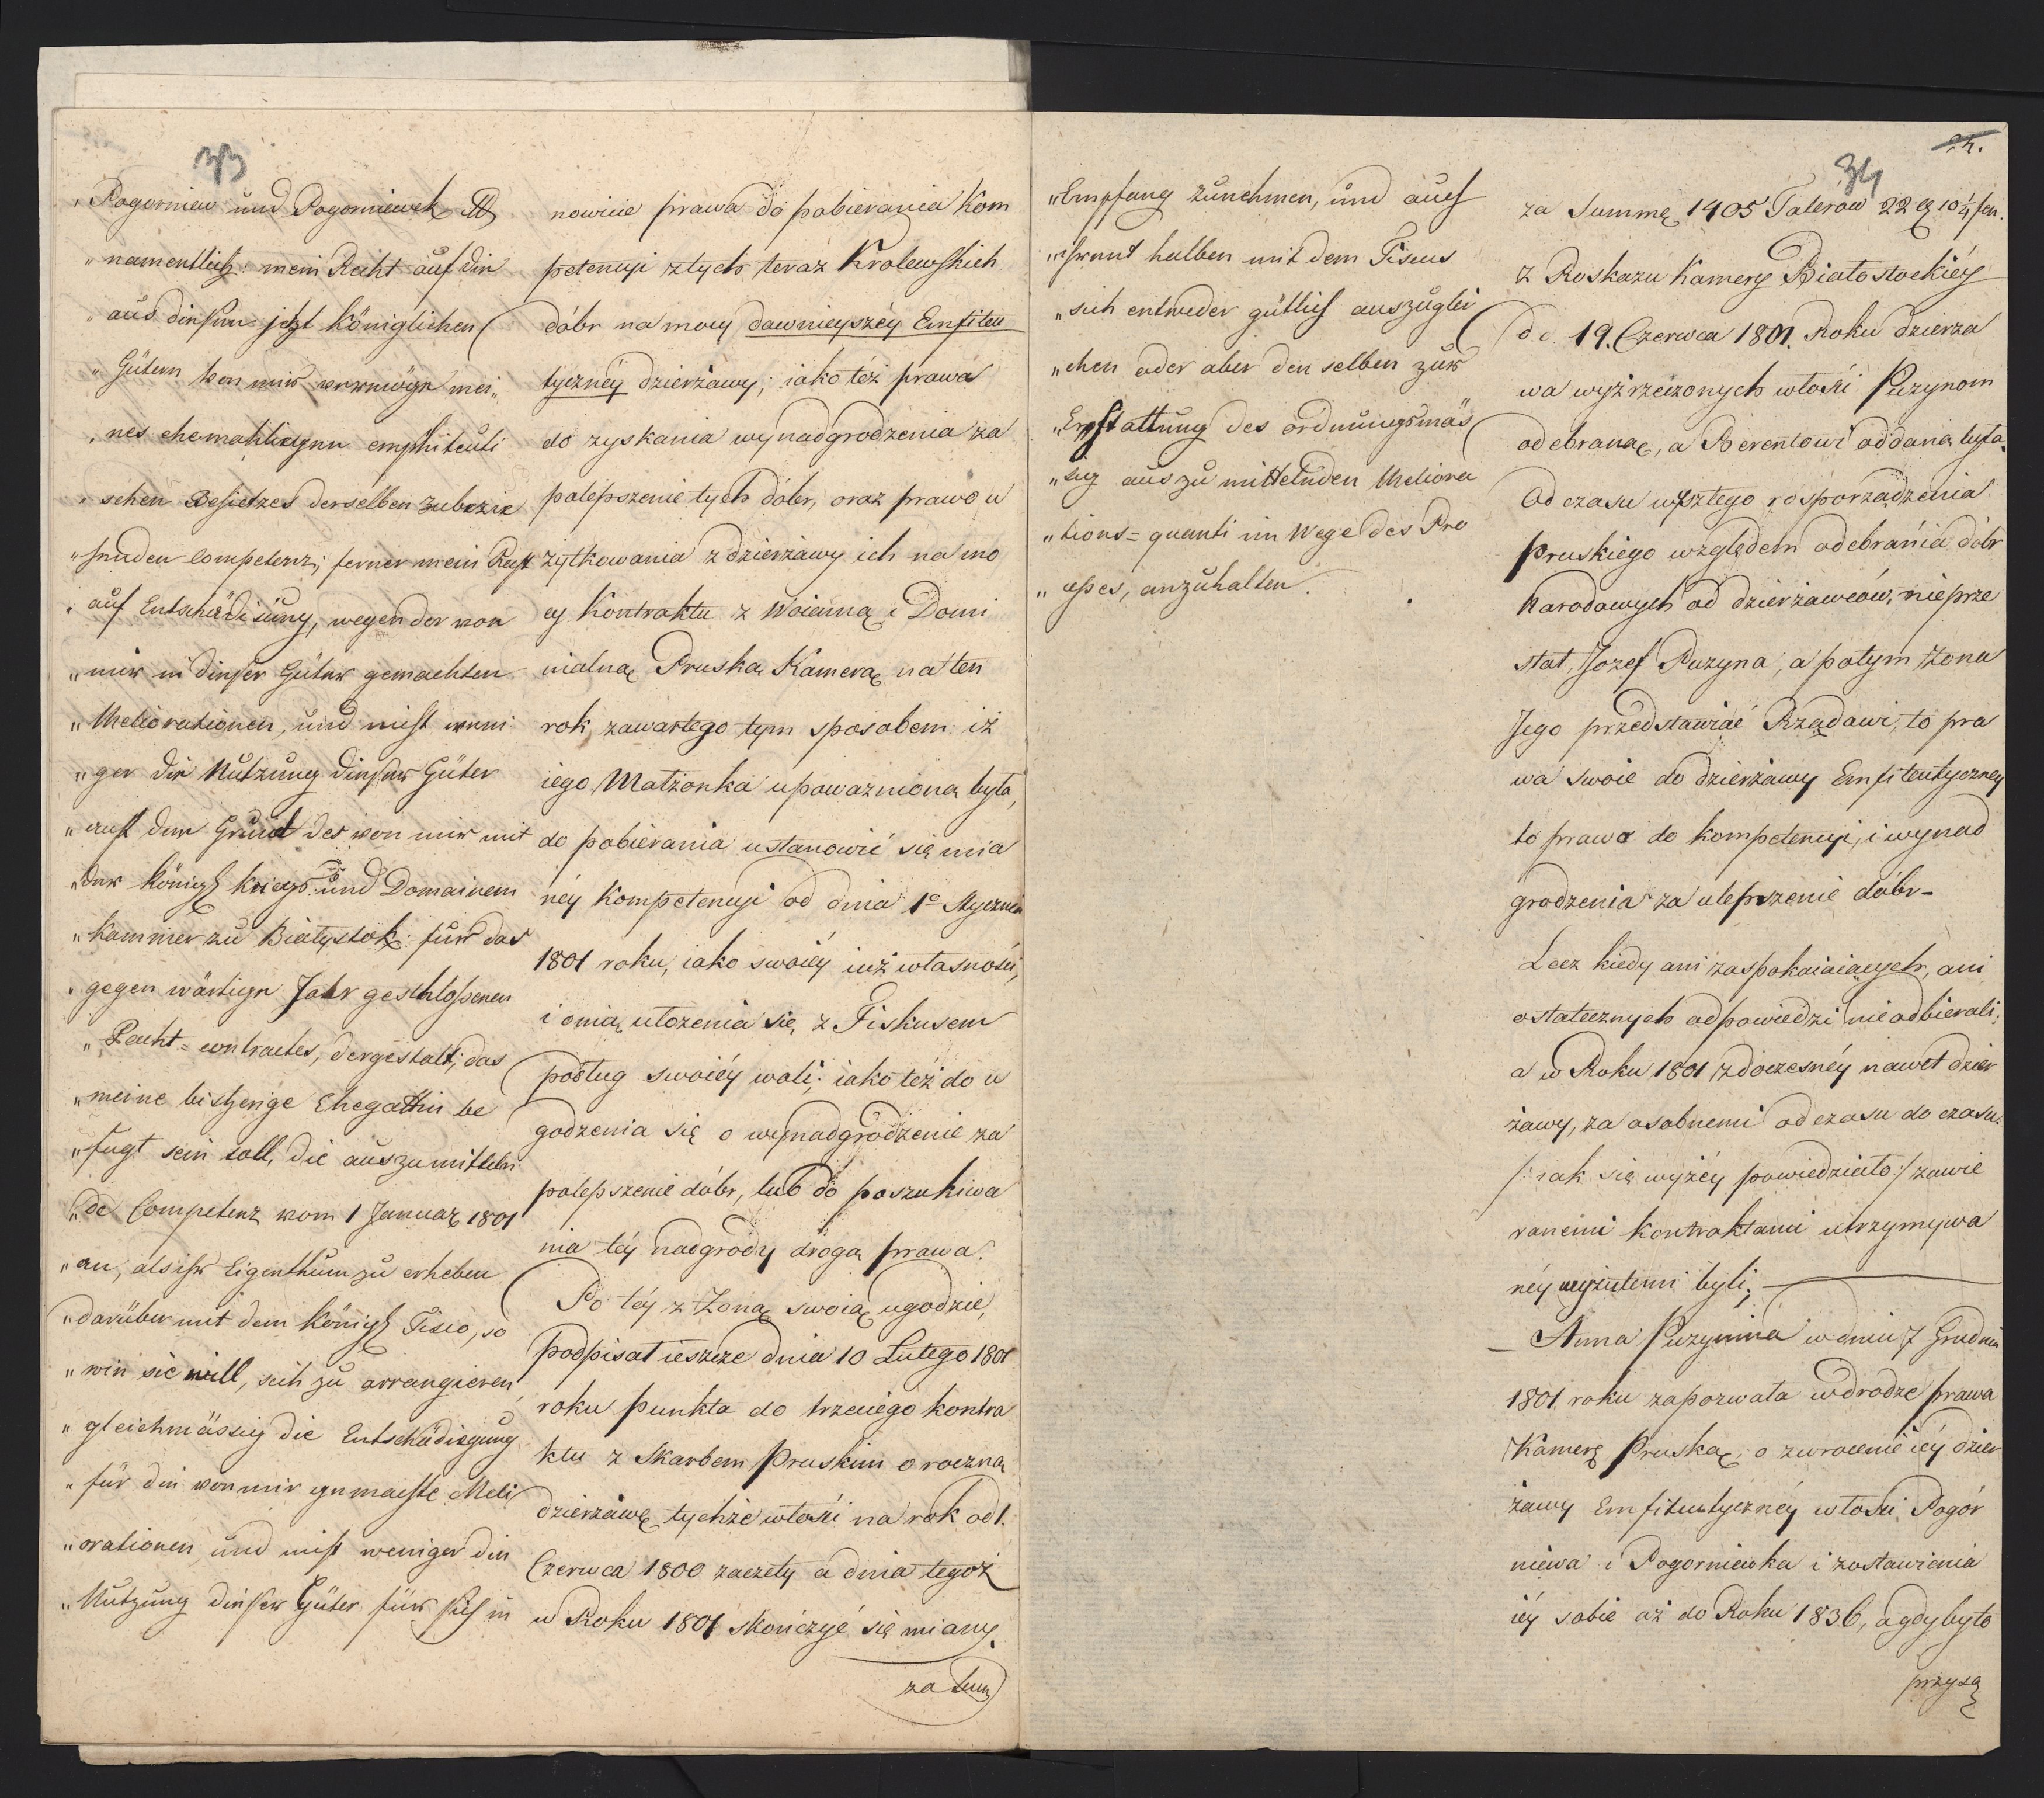 33
„Pogorniew und Pogorniewek
„namentlich: mein Recht auf die
„aus diesen jetzt Königlichen
„Gütern von mir vermöge mei„
„nes ehemahligen emphiteuti
„schen Besietzes derselben zubezie
„henden Competenz; ferner mein Recht
„auf Entschädigung, wegen der von
„mir in dieser Güter gemachten
„Meliorationen, und nicht weni
„ger die Nutzung dieser Güter
„auf den Grund des von mir mit
„der Königl Kriegs und Domainen
„Kammer zu Białystok für das
„gegenwärtige Jahr geschloßenen
„Pacht=contractes, dergestalt; das
„meine bisherige Ehegattin be
„fugt sein soll, die auszumitteln
„de Competenz vom 1 Januar 1801
„an, als ihr Eigenthum zu erheben
„darüber mit dem Königl Fisco, so
„wie sie will, sich zu arrangieren,
„gleichmässig die Entschädigung
„für die von mir gemachte Meli
„orationen und nicht weniger die
„Nutzung dieser Güter für sich in
nowicie prawa do pobierania Kom
petencyi ztych teraz Krolewskich
dóbr na mocy dawnieyszéy Emfiteu
tycznéy dzierżawy; iako też prawa
do zyskania wynadgrodzenia za
polepszenie tych dóbr, oraz prawo u
żytkowania z dzierżawy ich na mo
cy Kontraktu z Woienną i Domi
nialną Pruską Kamerą na ten
rok zawartego tym sposobem iż
iego Małżonka upoważnioną była,
do pobierania ustanowić się mia
néy Kompetencyi od dnia 1º Stycznia
1801 roku, iako swoiéy iuż własności,
i onią ułożenia się z Fiskusem
podług swoiéy woli; iako też do u
godzenia się o wynadgrodzenie za
polepszenie dóbr, lub do poszukiwa
nia téy nadgrody drogą prawa.
Po téy z Żoną swoią ugodzie,
podpisał ieszcze dnia 10 Lutego 1801
roku punkta do trzeciego kontra
ktu z Skarbem Pruskim o roczną
dzierżawę tychże włości na rok od 1.
Czerwca 1800 zaczęty a dnia tegoż
w Roku 1801 skończyć się miany.
za Sum
34
„Empfang zunehmen, und auch
„ihrent halben mit dem Fiscus
„sich entweder gütlich auszuglei
„chen oder aber denselben zur
„Erstattung des ordnungsmäs
„sig auszumittelnden Meliora
„tions=quanti im Wege des Pro
„ceßes, anzuhalten.
za Summę 1405 Talerów 22 10 1/4 fen.
z Roskazu Kamery Białostockiéy
d.d. 19. Czerwca 1801. Roku dzierża
wa wyż rzeczonych włości Puzynom
odebraną, a Berentowi oddaną była.
Od czasu wyszłego rosporządzenia
Pruskiego względem odebránia dóbr
Narodowych od dzierżawców, nieprze
stał, Jozef Puzyna, a potym Żona
Jego przedstawiać Rządowi, to pra
wa swoie do dzierżawy Emfiteutyczney
to prawo do kompetencyi, i wynad
grodzenia za ulepszenie dóbr-
Lecz kiedy ani zaspokaiaiących, ani
ostatecznych odpowiedzi nieodbierali;
a w Roku 1801 z doczesnéy nawet dzier
żawy, za osobnemi od czasu do czasu
/: iak się wyżéy powiedziało :/ zawie
ranemi kontraktami utrzymywa
néy wyzutemi byli; —
— Anna Puzynina w dniu 7 Grudnia
1801 roku zapozwała w drodze prawa
Kamerę Pruską, o zwrocenie iéy dzier
żawy Emfiteutycznéy włości Pogór
niewa i Pogorniewka i zostawienia
iéy sobie aż do Roku 1836, a gdy było
przysą